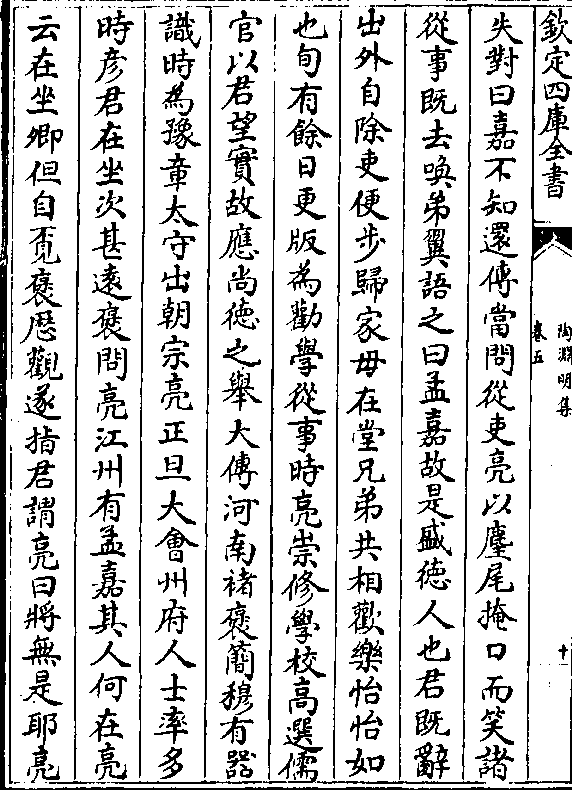 欽定四庫全書
陶淵明集
卷五
十
失對曰嘉不知還傳當問從吏亮以麈尾掩口而笑諸
從事既去喚弟翼語之曰孟嘉故是盛德人也君既辭
出外自除吏便步歸家母在堂兄弟共相歡樂怡怡如
也旬有餘日更版為勸學從事時亮崇修學校高選儒
官以君望實故應尚徳之舉大傳河南褚裒簡穆有器
識時為豫章太守出朝宗亮正旦大會州府人士率多
時彦君在坐次甚逺裒問亮江州有孟嘉其人何在亮
云在坐卿但自覓裒歴觀遂指君謂亮曰將無是耶亮